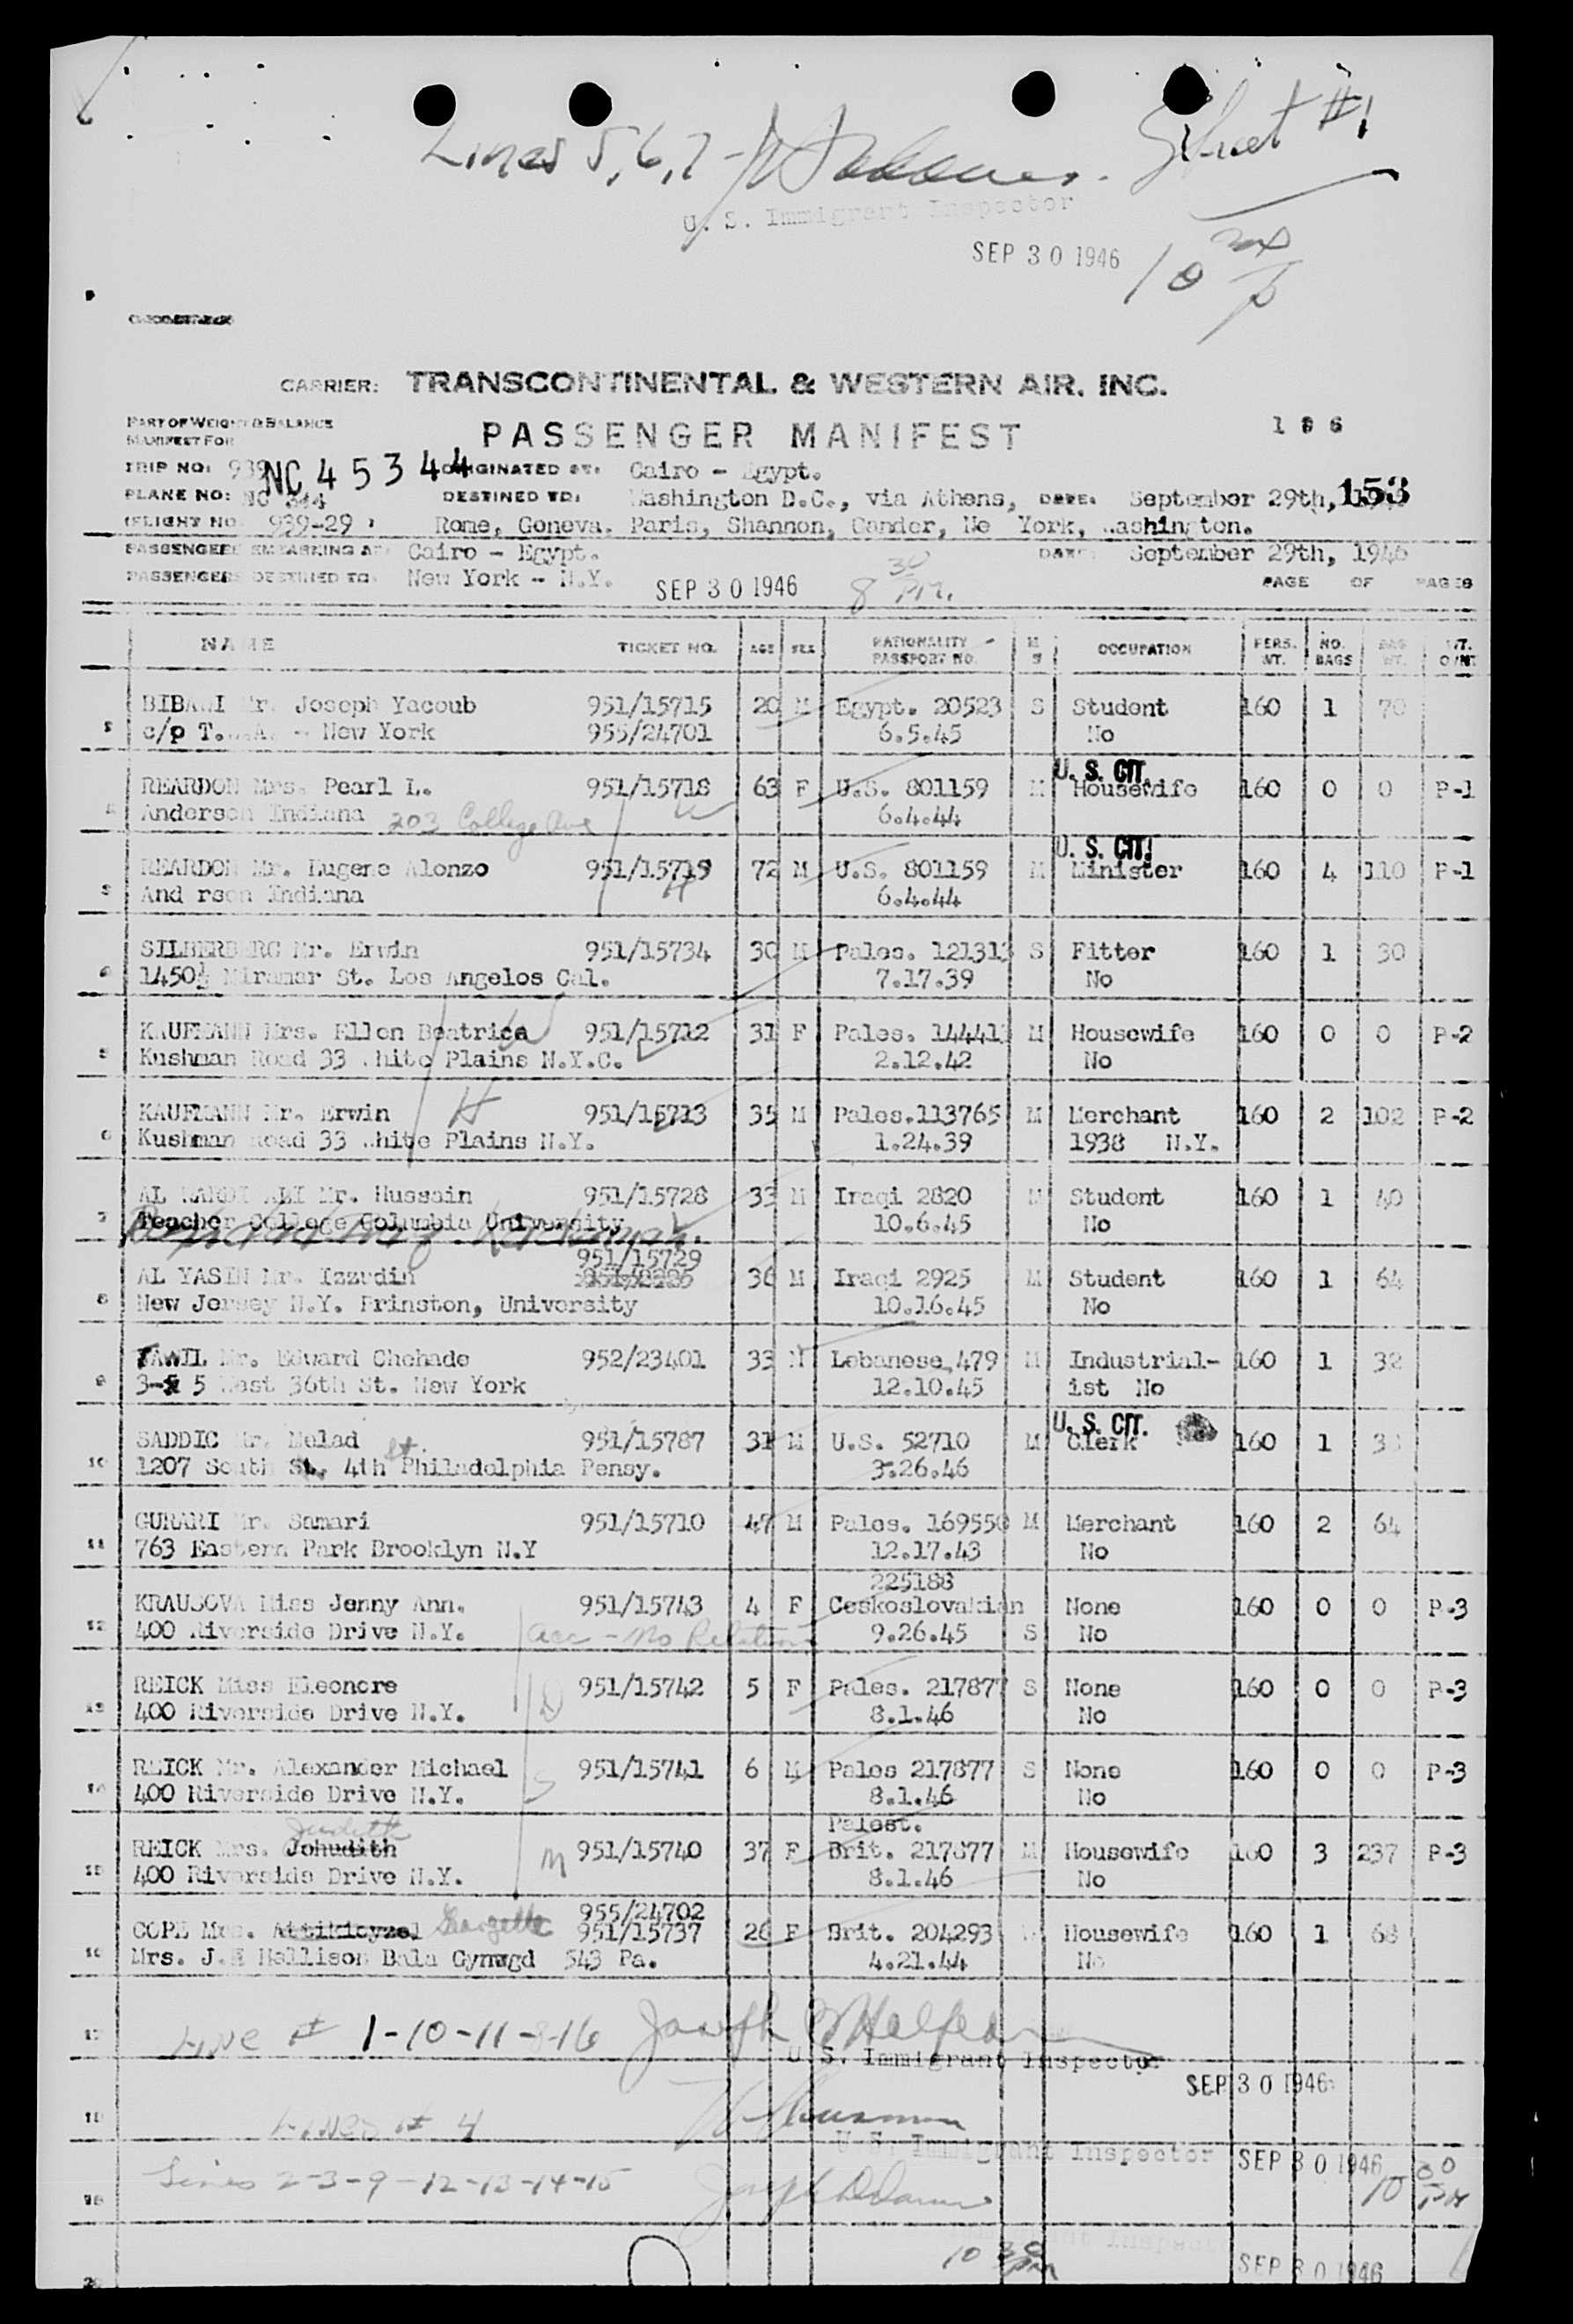 Lines 5, 6, 7 - Sheet #1
U. S. Immigrant Inspector
SEP 30 1946
10
CARRIER: TRANSCONTINENTAL & WESTERN AIR. INC.
PART OF WEIGHT & BALANCE
MANIFEST FOR
PASSENGER MANIFEST
TRIP NO: 939 NC 45344 ORIGINATED AT: Cairo - Egypt.
PLANE NO: NC 344 DESTINED TO: Washington D.C., via Athens, DATE: September 29th, 153
FLIGHT NO 939-29 Rome, Geneva. Paris, Shannon, Gander, Ne York, Washington.
PASSENGERS EMBARKING AT: Cairo - Egypt. DATE: September 29th, 1946
PASSENGERS DESTINED TO: New York - N.Y. SEP 30 1946 8 30 P.M. PAGE OF PAGES
NAME TICKET NO. AGE SEX NATIONALITY PASSPORT NO. M S OCCUPATION PERS. WT. NO. BAGS BAG WT.
BIBAWI Mr. Joseph Yacoub 951/15715 20 M Egypt. 20523 S Student 160 1 70
c/o T.W.A. - New York 955/24701 6.5.45 No
U. S. CIT.
REARDON Mrs. Pearl L. 951/15718 63 F U.S. 801159 M Housewife 160 0 0 P-1
Anderson Indiana 203 College Ave W 6.4.44
U. S. CIT.
3 REARDON Mr. Eugene Alonzo 951/15719 72 M U.S. 801159 M Minister 160 4 110 P-1
And rson Indiana H 6.4.44
SILBERBERG Mr. Erwin 951/15734 30 M Pales. 121313 S Fitter 160 1 30
1450½ Miramar St. Los Angelos Cal. 7.17.39 No
KAUFMANN Mrs. Ellen Beatrice W 951/15712 31 F Pales. 144413 M Housewife 160 0 0 P-2
5 Kushman Road 33 White Plains N.Y.C. 2.12.42 No
KAUFMANN Mr. Erwin H 951/15713 35 M Pales.113765 M Merchant 160 2 102 P-2
6 Kushman Road 33 White Plains N.Y. 1.24.39 1938 N.Y.
Mr. Hussain 951/15728 33 M Iraqi 2820 M Student 160 1 40
7 Teacher College Columbia University 10.6.45 No
951/15729
AL YASIN Mr. Izzudin 36 M Iraqi 2925 M Student 160 1 64
8 New Jersey N.Y. Prinston, University 10.16.45 No
TAWIL Mr. Edward Chehade 952/23401 33 M Lebanese,479 M Industrial- 160 1 32
9 5 West 36th St. New York 12.10.45 ist No
U. S. CIT.
SADDIC Mr. Melad 951/15787 31 M U.S. 52710 M Clerk 160 1
10 1207 South St. 4th St. Philadelphia Pensy. 3.26.46
GURARI Mr. Samari 951/15710 47 M Pales. 169550 M Merchant 160 2 64
11 763 Eastern Park Brooklyn N.Y 12.17.43 No
225188
KRAUSOVA Miss Jenny Ann. 951/15743 4 F Ceskoslovakian None 160 0 0 P-3
12 400 Riverside Drive N.Y. acc - No Relation 9.26.45 S No
REICK Miss Eleonore 951/15742 5 F Pales. 217877 S None 160 0 0 P-3
13 400 Riverside Drive N.Y. D 8.1.46 No
REICK Mr. Alexander Michael 951/15741 6 M Pales 217877 S None 160 0 0 P-3
14 400 Riverside Drive N.Y. S 8.1.46 No
Judith Palest.
REICK Mrs. Johudith 951/15740 37 F Brit. 217877 M Housewife 160 3 237 P-3
15 400 Riverside Drive N.Y. M 8.1.46 No
955/24702
COPE Mrs. Attikicyzel Georgette 951/15737 26 F Brit. 204293 Housewife 160 1 68
16 Mrs. J.H Hallison Bala Cynwgd 543 Pa. 4.21.44 No
17 Line # 1-10-11-8-16 Joseph
U. S. Immigrant Inspector
SEP 30 1946
18 Lines # 4
U.S. Immigrant Inspector SEP 30 1946
Lines 2-3-9-12-13-14-15 10 00 PM
Immigrant Inspector
10 30 PM SEP 30 1946
20